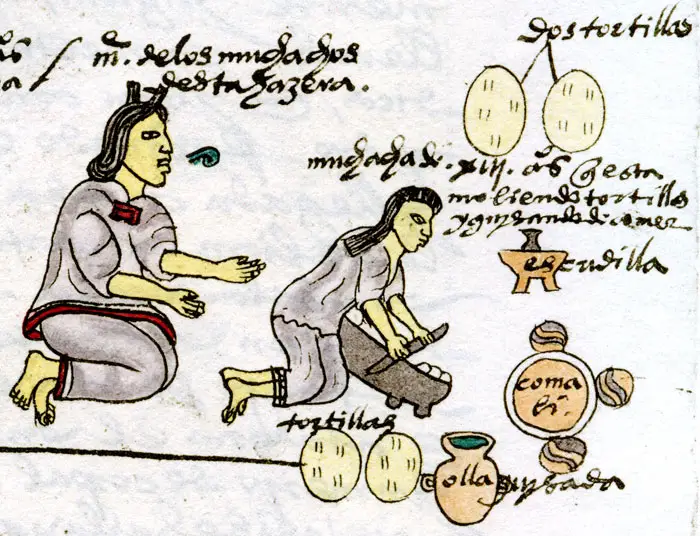 as / mº. de los muchachos
desta hazera.
dos tortillas
muchacha de. xiii. años questa
moliendo tortillas
y guysando de comer
escudilla
coma
li.
tortillas
olla guysada